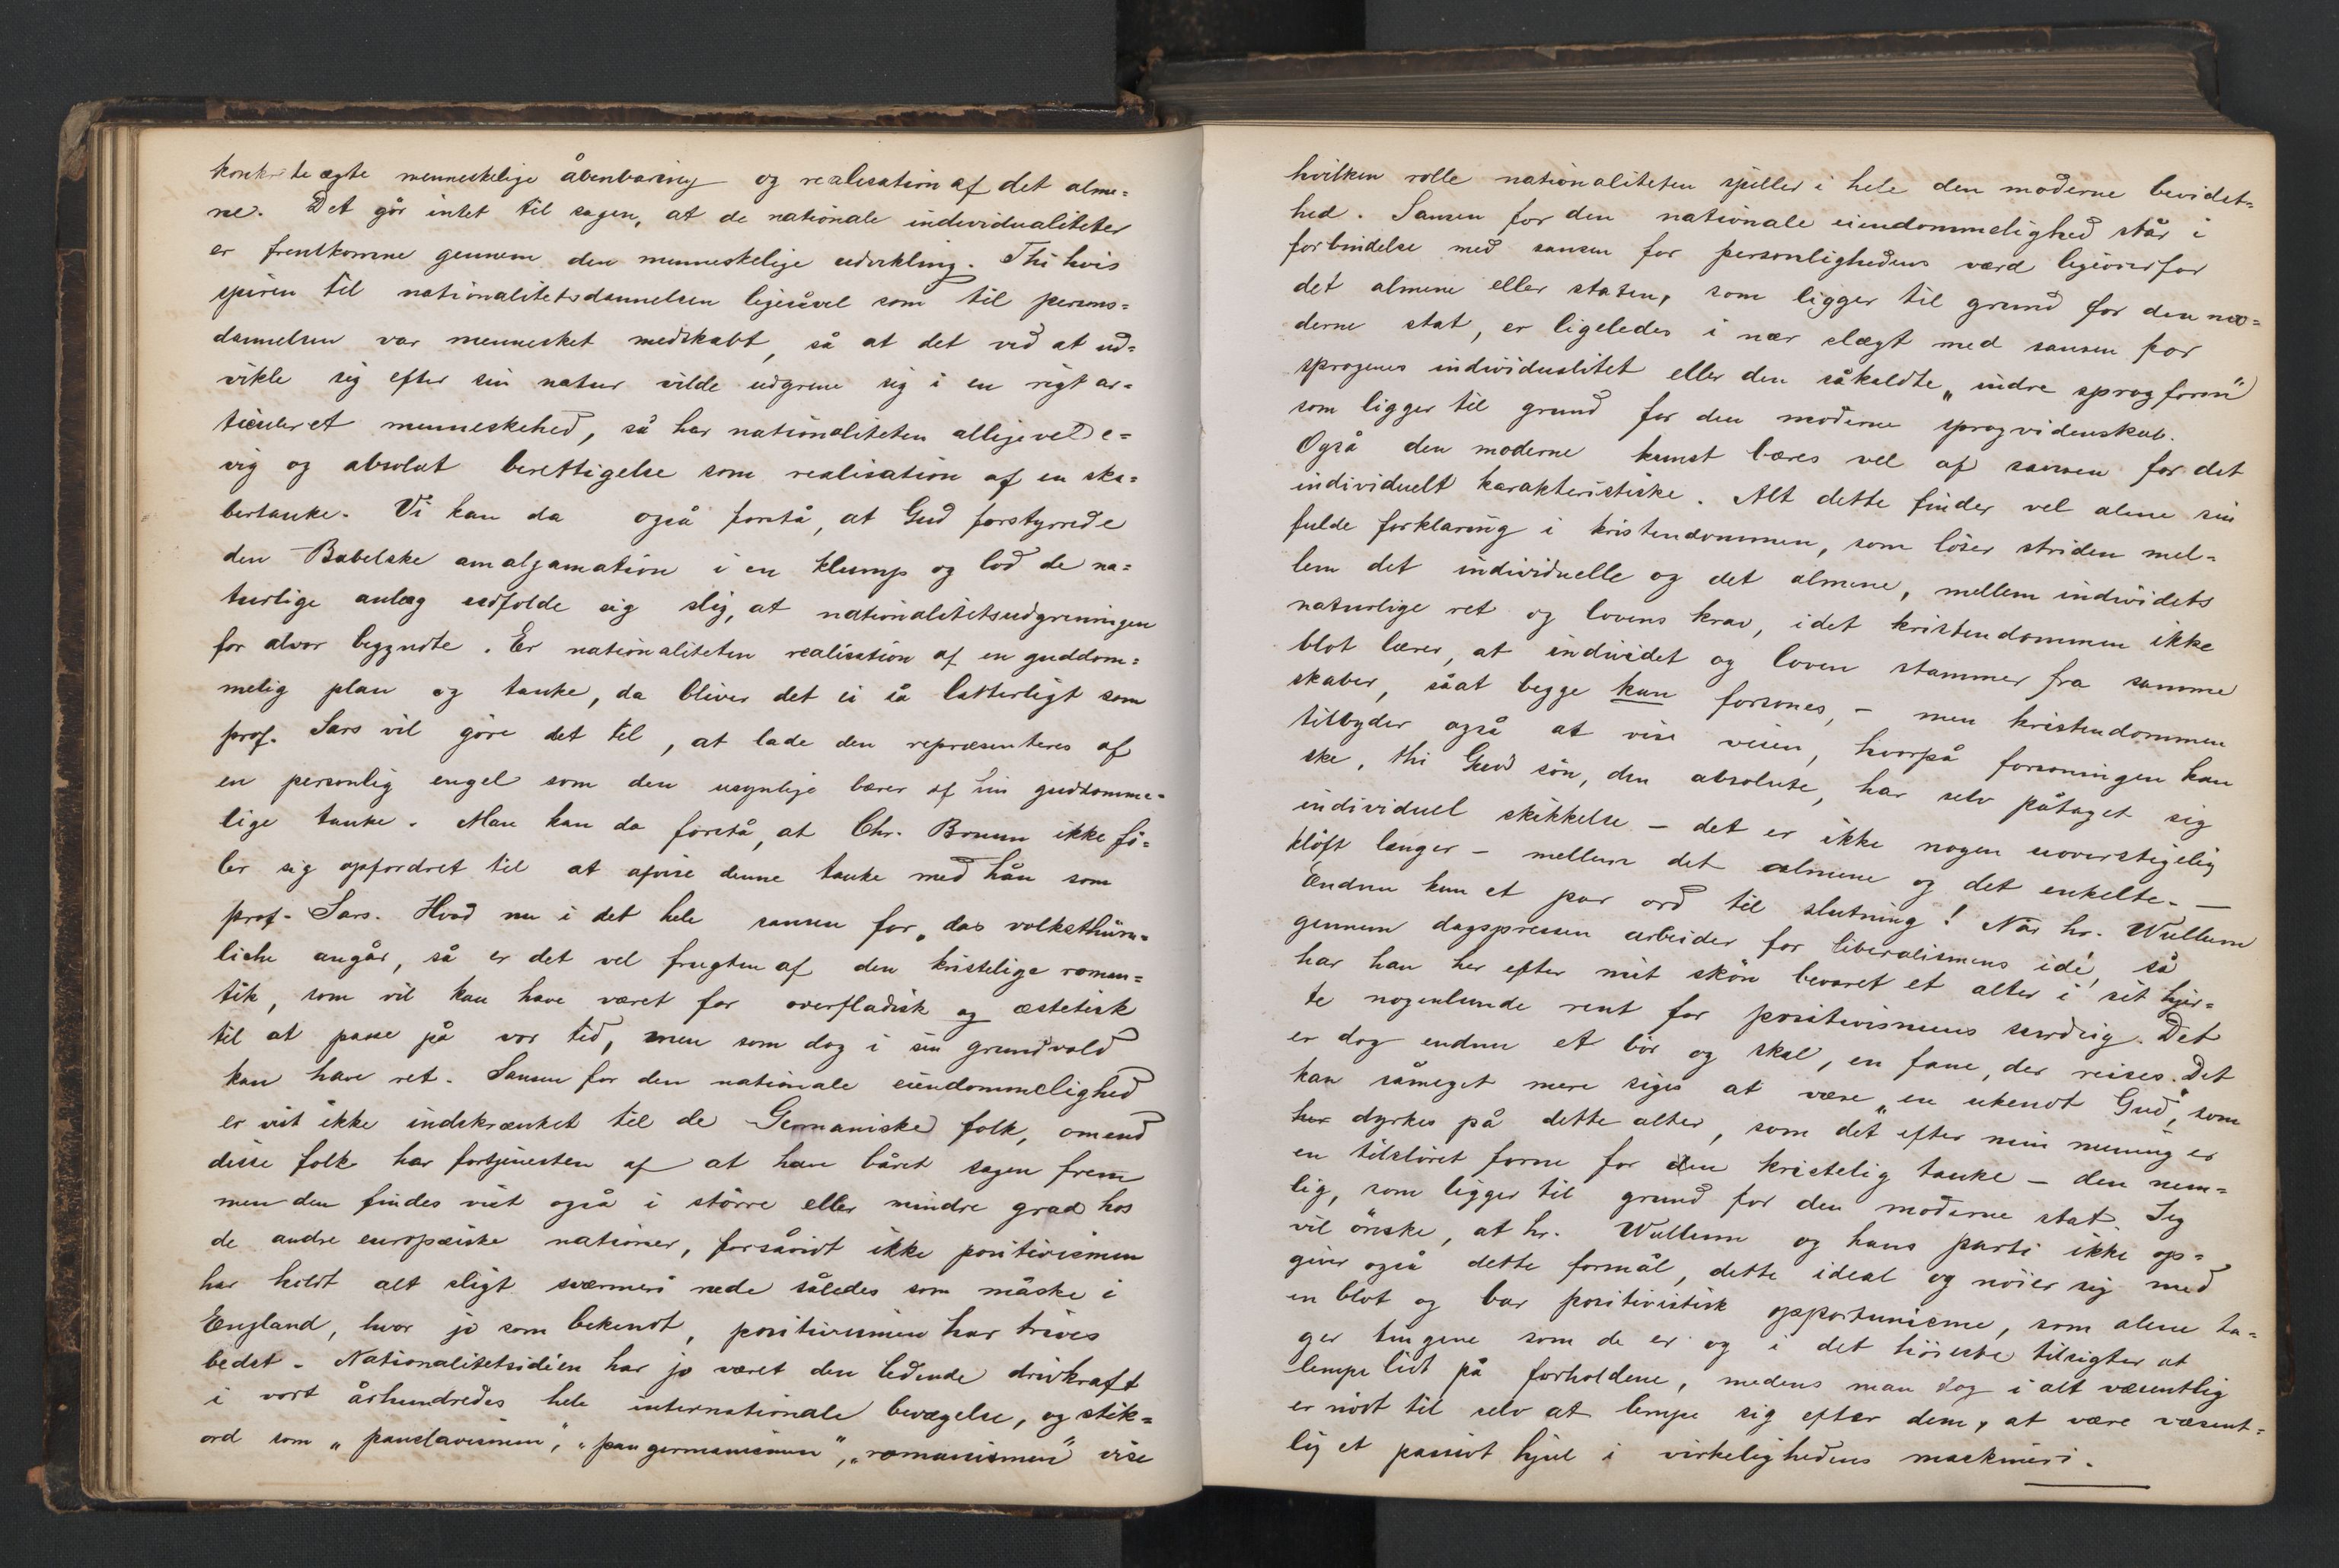 konkrete ægte menneskelige åbenbaring og realisation af det alme=
ne. Det gör intet til sagen, at de nationale individualiteter
er fremkomne gennem den menneskelige udvikling. Thi hvis
spiren til nationalitetsdannelsen ligesåvel som til persons=
dannelsen var mennesket medskabt, så at det ved at ud=
vikle sig efter sin natur vilde udgrene sig i en rigt ar=
ticuleret menneskehed, så har nationaliteten alligevel e=
vig og absolut berettigelse som realisation af en ska=
bertanke. Vi kan da også forstå, at Gud forstyrrede
den Babelske amalgamation i en klump og lod de na=
turlige anlæg udfolde sig slig, at nationalitetsudgreningen
for alvor begyndte. Er nationaliteten realisation af en guddom=
melig plan og tanke, da bliver det ei så latterligt som
prof. Sars vil göre det til, at lade den repræsenteres af
en personlig engel som den usynlige bærer af hin guddomme=
lige tanke. Man kan da forstå, at Chr. Bruun ikke fö=
ler sig opfordret til at afvise denne tanke med hån som
prof. Sars. Hvad nu i det hele sansen for „das volksthüm=
liche angår, så er det vel frugten af den kristelige roman=
tik, som vil kan have været for overfladisk og æstetisk
til at passe på vor tid, men som dog i sin grundvold
kan have ret. Sansen for den nationale eiendommelighed
er vist ikke indskrænket til de Germaniske folk, omend
disse folk har fortjenesten af at have båret sagen frem
men den findes vist også i större eller mindre grad hos
de andre europæiske nationer, forsåvidt ikke positivismen
har holdt alt sligt sværmeri nede således som måske i
England, hvor jo som bekendt, positivismen har trives
bedst. Nationalitetsidéen har jo været den ledende drivkraft
i vort århundredes hele internationale bevægelse, og stik=
ord som „panslavismen“, „pangermanismen“, „romanismen“ vise
hvilken rolle nationaliteten spiller i hele den moderne bevidst=
hed. Sansen for den nationale eiendommelighed står i
forbindelse med sansen for personlighedens værd ligeoverfor
det almene eller staten, som ligger til grund for den mo=
derne stat, er ligeledes i nær slægt med sansen for
sprogenes individualitet eller den såkaldte „indre sprogform“
som ligger til grund for den moderne sprogvidenskab.
Også den moderne kunst bæres vel af sansen for det
individuelt karakteristiske. Alt dette finder vel alene sin
fulde forklaring i kristendommen, som löser striden mel=
lem det individuelle og det almene, mellem individets
naturlige ret og lovens krav, idet kristendommen ikke
blot lærer, at individet og loven stammer fra samme
skaber, såat begge kan forsones, – men kristendommen
tilbyder også at vise veien, hvorpå forsoningen kan
ske, thi Guds sön, den absolute, har selv påtaget sig
individuel skikkelse – det er ikke nogen uoverstigelig
klöft længer – mellem det almene og det enkelte. –
Endnu kun et par ord til slutning! Når hr. Wullum
gennem dagspressen arbeider for liberalismens idé, så
har han her efter mit skön bevaret et alter i sit hjer=
te nogenlunde rent for positivismens surdeig. Det
er dog endnu et bör og skal, en fane, der reises. Det
kan såmeget mere siges at være „en ukendt Gud“, som
her dyrkes på dette alter, som det efter min mening er
en tilslöret form for den kristelig tanke – den nem=
lig, som ligger til grund for den moderne stat. Jeg
vil önske, at hr. Wullum og hans parti ikke op=
giver også dette formål, dette ideal og nöier sig med
en blot og bar positivistisk opportunisme, som alene ta=
ger tingene som de er og i det höieste tilsigter at
lempe lidt på forholdene, medens man dog i alt væsentlig
er nödt til selv at lempe sig efter dem, at være væsent=
lig et passivt hjul i virkelighedens maskineri.